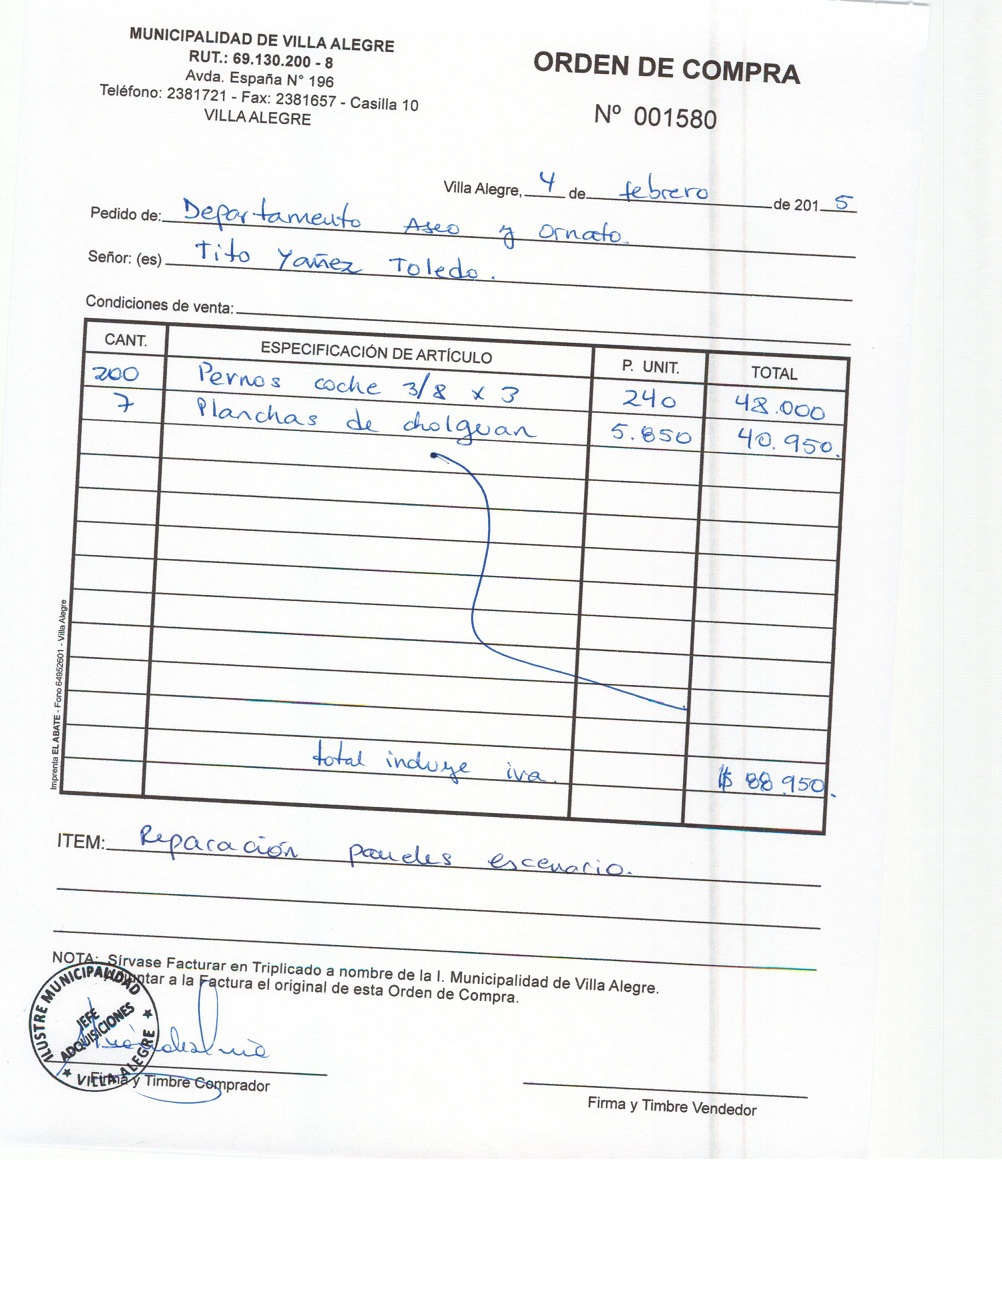 MUNICIPALIDAD DE VILLA ALEGRE
RUT.: 69.130.200 - 8
Avda. España N° 196
Teléfono: 2381721 - Fax: 2381657 - Casilla 10
VILLA ALEGRE
ORDEN DE COMPRA
Nº 001580
Villa Alegre, 4 de febrero de 2015
Pedido de: Departamento Aseo y Ornato.
Señor: (es) Tito Yañez Toledo.
Condiciones de venta:
CANT. ESPECIFICACIÓN DE ARTÍCULO P. UNIT. TOTAL
200 Pernos coche 3/8 x 3 240 48.000
7 Planchas de cholguan 5.850 40.950.
total incluye iva. $ 88.950.
Imprenta EL ABATE - Fono 64952601 - Villa Alegre
ITEM: Reparación paneles escenario.
NOTA: Sírvase Facturar en Triplicado a nombre de la I. Municipalidad de Villa Alegre.
ntar a la Factura el original de esta Orden de Compra.
ILUSTRE MUNICIPALIDAD
JEFE
ADQUISICIONES
★ VILLA ALEGRE ★
Firma y Timbre Comprador
Firma y Timbre Vendedor